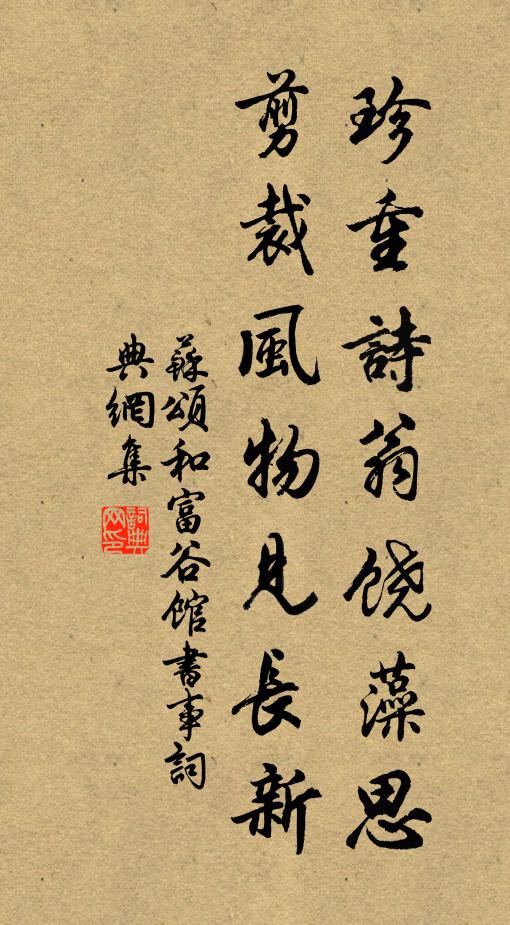 珍重詩翁饶藻思
剪裁風物見長新
蘇頌和富谷館書事詞
典網集
詞典
网印